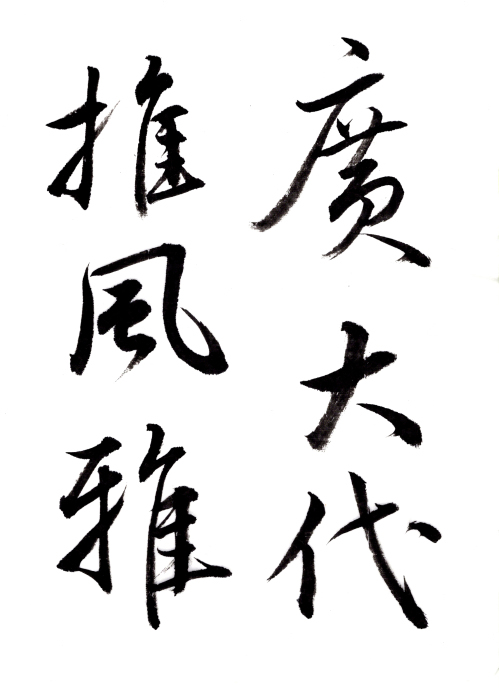 廣大代
推風雅